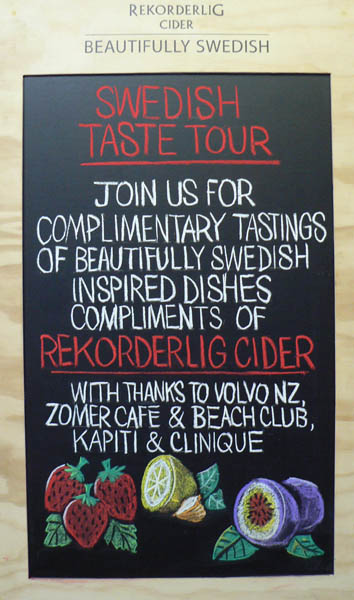 REKORDERLIG
CIDER
BEAUTIFULLY SWEDISH
SWEDISH
TASTE TOUR
JOIN US FOR
COMPLIMENTARY TASTINGS
OF BEAUTIFULLY SWEDISH
INSPIRED DISHES
COMPLIMENTS OF
REKORDERLIG CIDER
WITH THANKS TO VOLVO NZ,
ZOMER CAFÉ & BEACH CLUB,
KAPITI & CLINIQUE